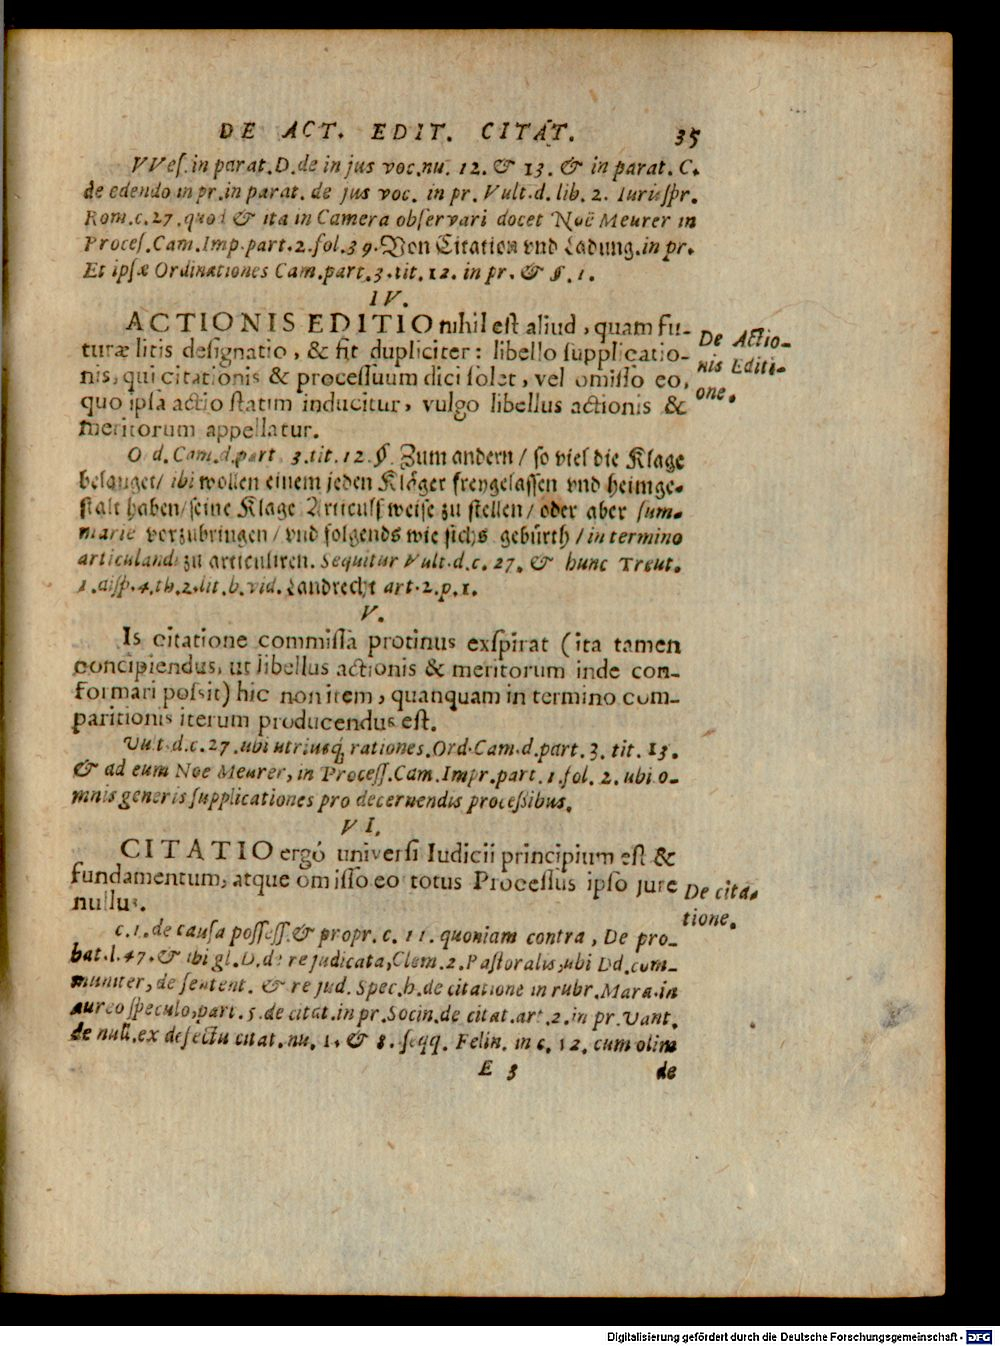 DE ACT. EDIT. CITAT. 35
VVes. in parat. D. de in jus voc. nu. 12. & 13. & in parat. C.
de edendo in pr. in parat. de jus voc. in pr. Vult. d. lib. 2. Iurisspr.
Rom. c. 27. quod & ita in Camera observari docet Noë Meurer in
Proces. Cam. Imp. part. 2. fol. 39. Von Citation vnd Ladung. in pr.
Et ipsæ Ordinationes Cam. part. 3. tit. 12. in pr. & §. 1.
IV.
ACTIONIS EDITIO nihil est aliud, quam fu-
turæ litis designatio, & fit dupliciter: libello supplicatio-
nis, qui citationis & processuum dici solet, vel omisso eo,
quo ipsa actio statim inducitur, vulgo libellus actionis &
meritorum appellatur.
De Actio-
nis Editi-
one.
O d. Cam. d. part. 3. tit. 12. §. Zum andern / so viel die Klage
belanget / ibi wollen einem jeden Kläger freygelassen vnd heimge-
stalt haben / seine Klage Articulsweise zu stellen / oder aber sum-
marie vorzubringen / vnd folgends wie sichs gebürth / in termino
articulandi zu articuliren. Sequitur Vult. d. c. 27. & hunc Treut.
1. disp. 4. th. 2. lit. b. vid. Landrecht art. 2. p. 1.
V.
Is citatione commissâ protinus exspirat (ita tamen
concipiendus, ut libellus actionis & meritorum inde con-
formari possit) hic non item, quanquam in termino com-
paritionis iterum producendus est.
Vult. d. c. 27. ubi utriusq; rationes. Ord. Cam. d. part. 3. tit. 13.
& ad eum Noe Meurer, in Process. Cam. Impr. part. 1. fol. 2. ubi o-
mnis generis supplicationes pro decernendis processibus.
VI.
CITATIO ergò universi Iudicii principium est &
fundamentum, atque omisso eo totus Processus ipso jure
nullus.
De cita-
tione.
c. 1. de causa possess. & propr. c. 11. quoniam contra, De pro-
bat. l. 47. & ibi gl. D. de re judicata, Clem. 2. Pastoralis, ubi Dd. com-
muniter, de sentent. & re jud. Spec. h. de citatione in rubr. Mara. in
aureo speculo, part. 5. de citat. in pr. Socin. de citat. art. 2. in pr. Vant.
de null. ex defectu citat. nu. 1. & 8. seqq. Felin. in c. 12. cum olim
E 3 de
Digitalisierung gefördert durch die Deutsche Forschungsgemeinschaft - DFG